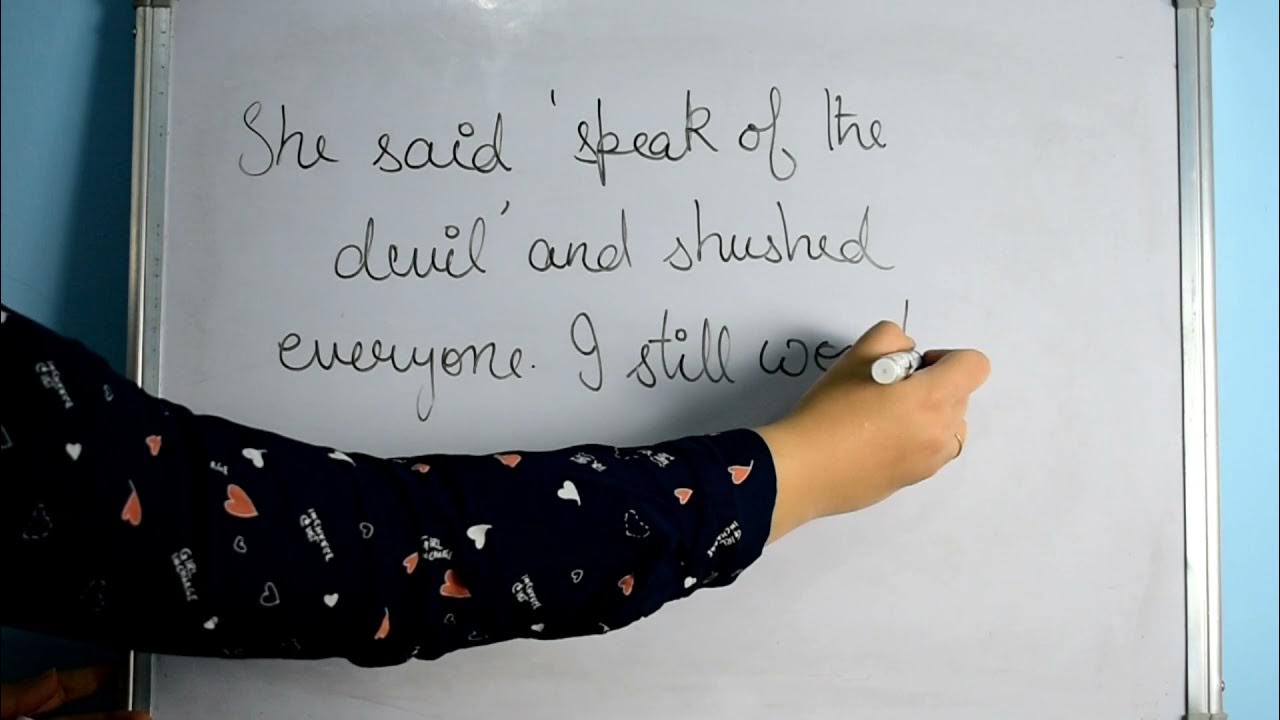 She said 'speak of the
devil' and shushed
everyone. I still
GIRL
IN CHARGE